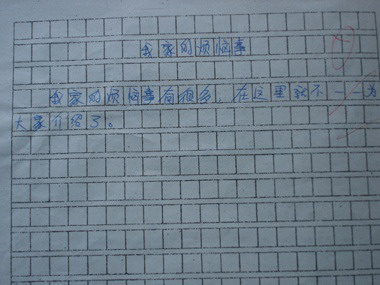 我家的烦恼事
我家的烦恼事有很多，在这里就不一一为
大家介绍了。